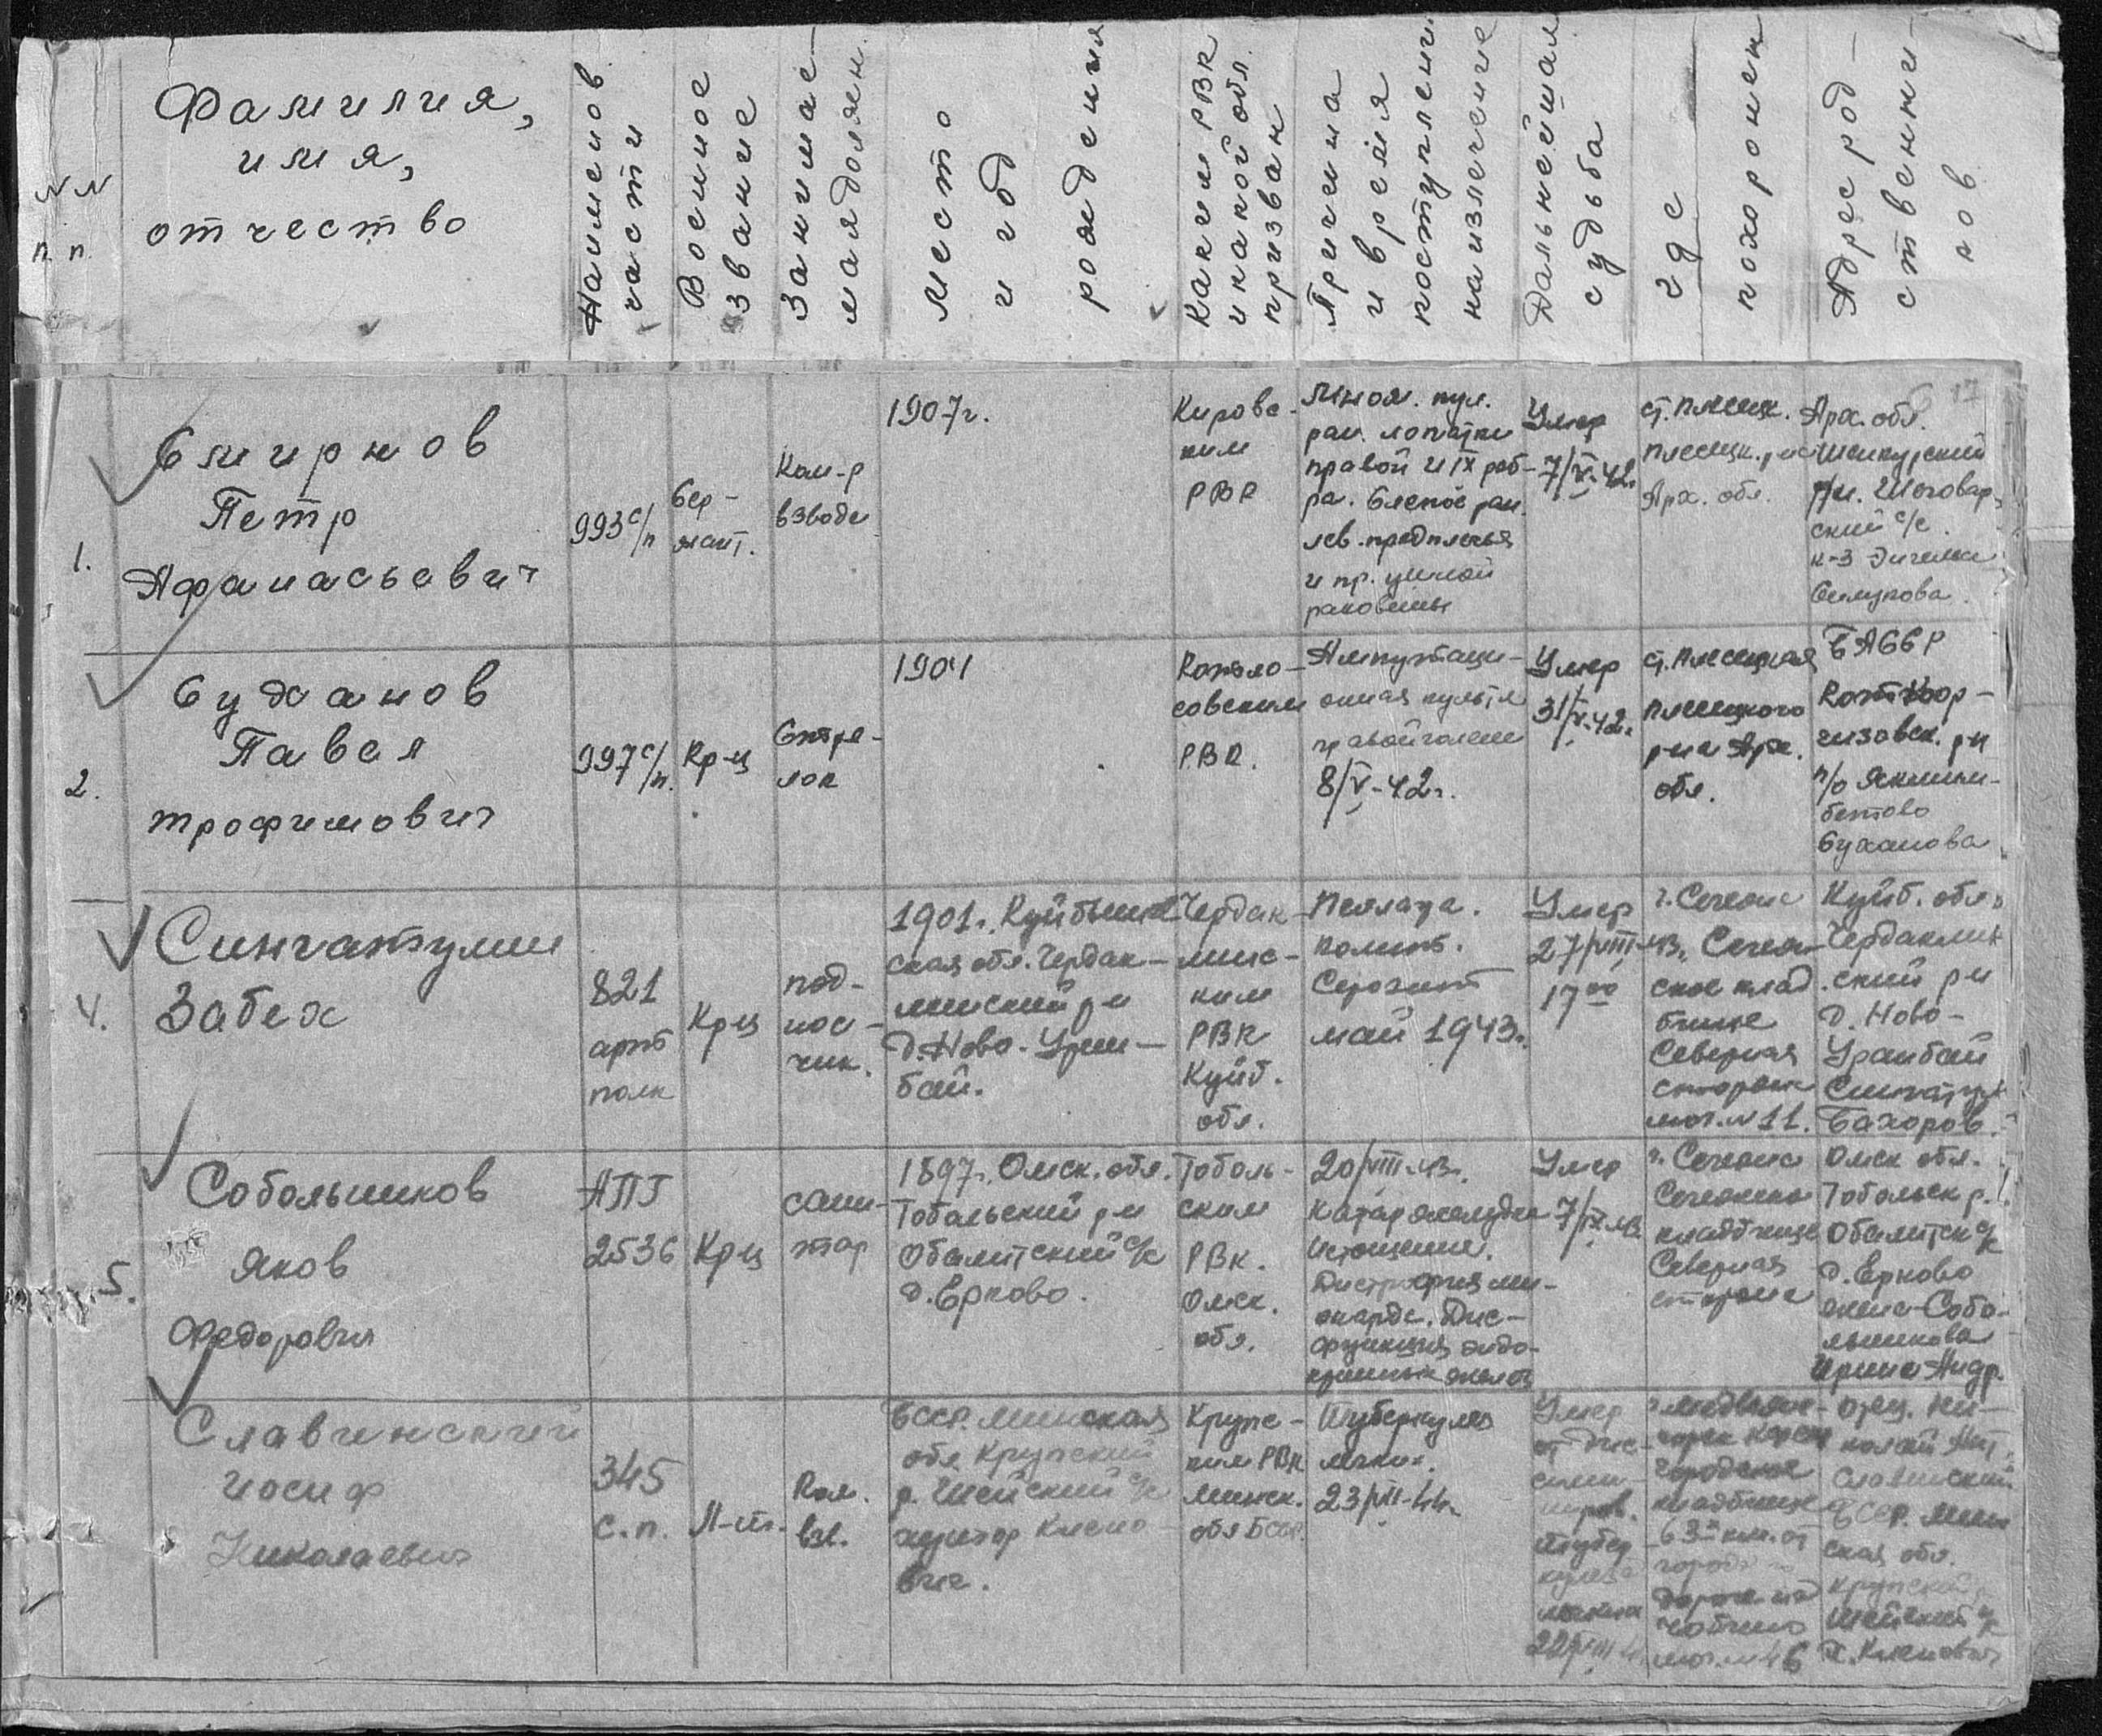 NN
п.п.
Фамилия,
имя,
отчество
Наименов.
части
Военное
звание
Занимае-
мая должн.
Место
и год
рождения
Каким РВК
и какой обл.
призван
Причина
и время
поступлени
на излечение
Дальнейшая
судьба
где
похоронен
Адрес род-
ственни-
ков
17
1.
Смирнов
Петр
Афанасьевич
993 с/п
Сер-
жант.
Ком-р
взвода
1907г.
Кировс-
ким
РВК
Множ. пул.
ран. лопатки
правой и IX реб-
ра. Слепое ран.
лев. предплечья
и пр. ушной
раковины
Умер
7/V-42г.
ст. Плесецк.
Плесецк. р-на
Арх. обл.
Арх. обл.
Шенкурский
р-н. Шеговар-
ский с/с.
к-з
2.
Суханов
Павел
трофимович
997 с/п.
Кр-ц
Стре-
лок
1901
совским
РВК.
Ампутаци-
онная культя
правой голени
8/V-42г.
Умер
31/V-42г.
ст. Плесецкая
Плесецкого
р-на Арх.
обл.
БАССР
п/о
Суханова
4.
Сингатулин
Забех
821
арт
полк
Кр-ц
под-
нос-
чик.
1901г. Куйбышев-
ская обл. Чердак-
линский р-н
д. Ново-Урен-
бай.
Чердак-
линс-
ким
РВК
Куйб.
обл.
Пеллагра.
Полиав.
Серозит
май 1943г.
Умер
27/VIII-43г.
17 00
г. Сегежа
Сегеж-
ское клад
бище
Северная
сторона
мог. N 11.
Куйб. обл.
Чердаклин
ский р-н
д. Ново-
Уранбай
Бахоров.
5.
Собольшиков
Яков
Федорович
АПГ
2536
Кр-ц
сани-
тар
1897г. Омск. обл.
Тобольский р-н
с/с
д. Ерково.
Тоболь-
ским
РВк.
Омск.
обл.
20/VIII-43г.
Катар желудка
Истощение.
Дистрофия ми-
окарда. Дис-
функция эндо-
кринных желез
Умер
7/IX-43
г. Сегежа
кладбище
Северная
сторона
Омск обл.
Тобольск р.
д. Ерково
жена-Собо-
льшикова
Ирина Андр.
Славинский
Иосиф
Николаевич
345
с.п.
Л-т.
Ком.
взв.
БССР. Минская
обл. Крупский
р.
хутор
Крупс-
ким РВК
Минск.
обл БССР.
Туберкулез
легких.
23/VII-44г.
Умер
от дис-
семи-
ниров.
тубер
кулеза
легких
городское
кладбище
в 3х км. от
города по
дороге на
мог. N 46
отец Ни-
колай
Славинский
БССР. Мин
ская обл.
Крупский